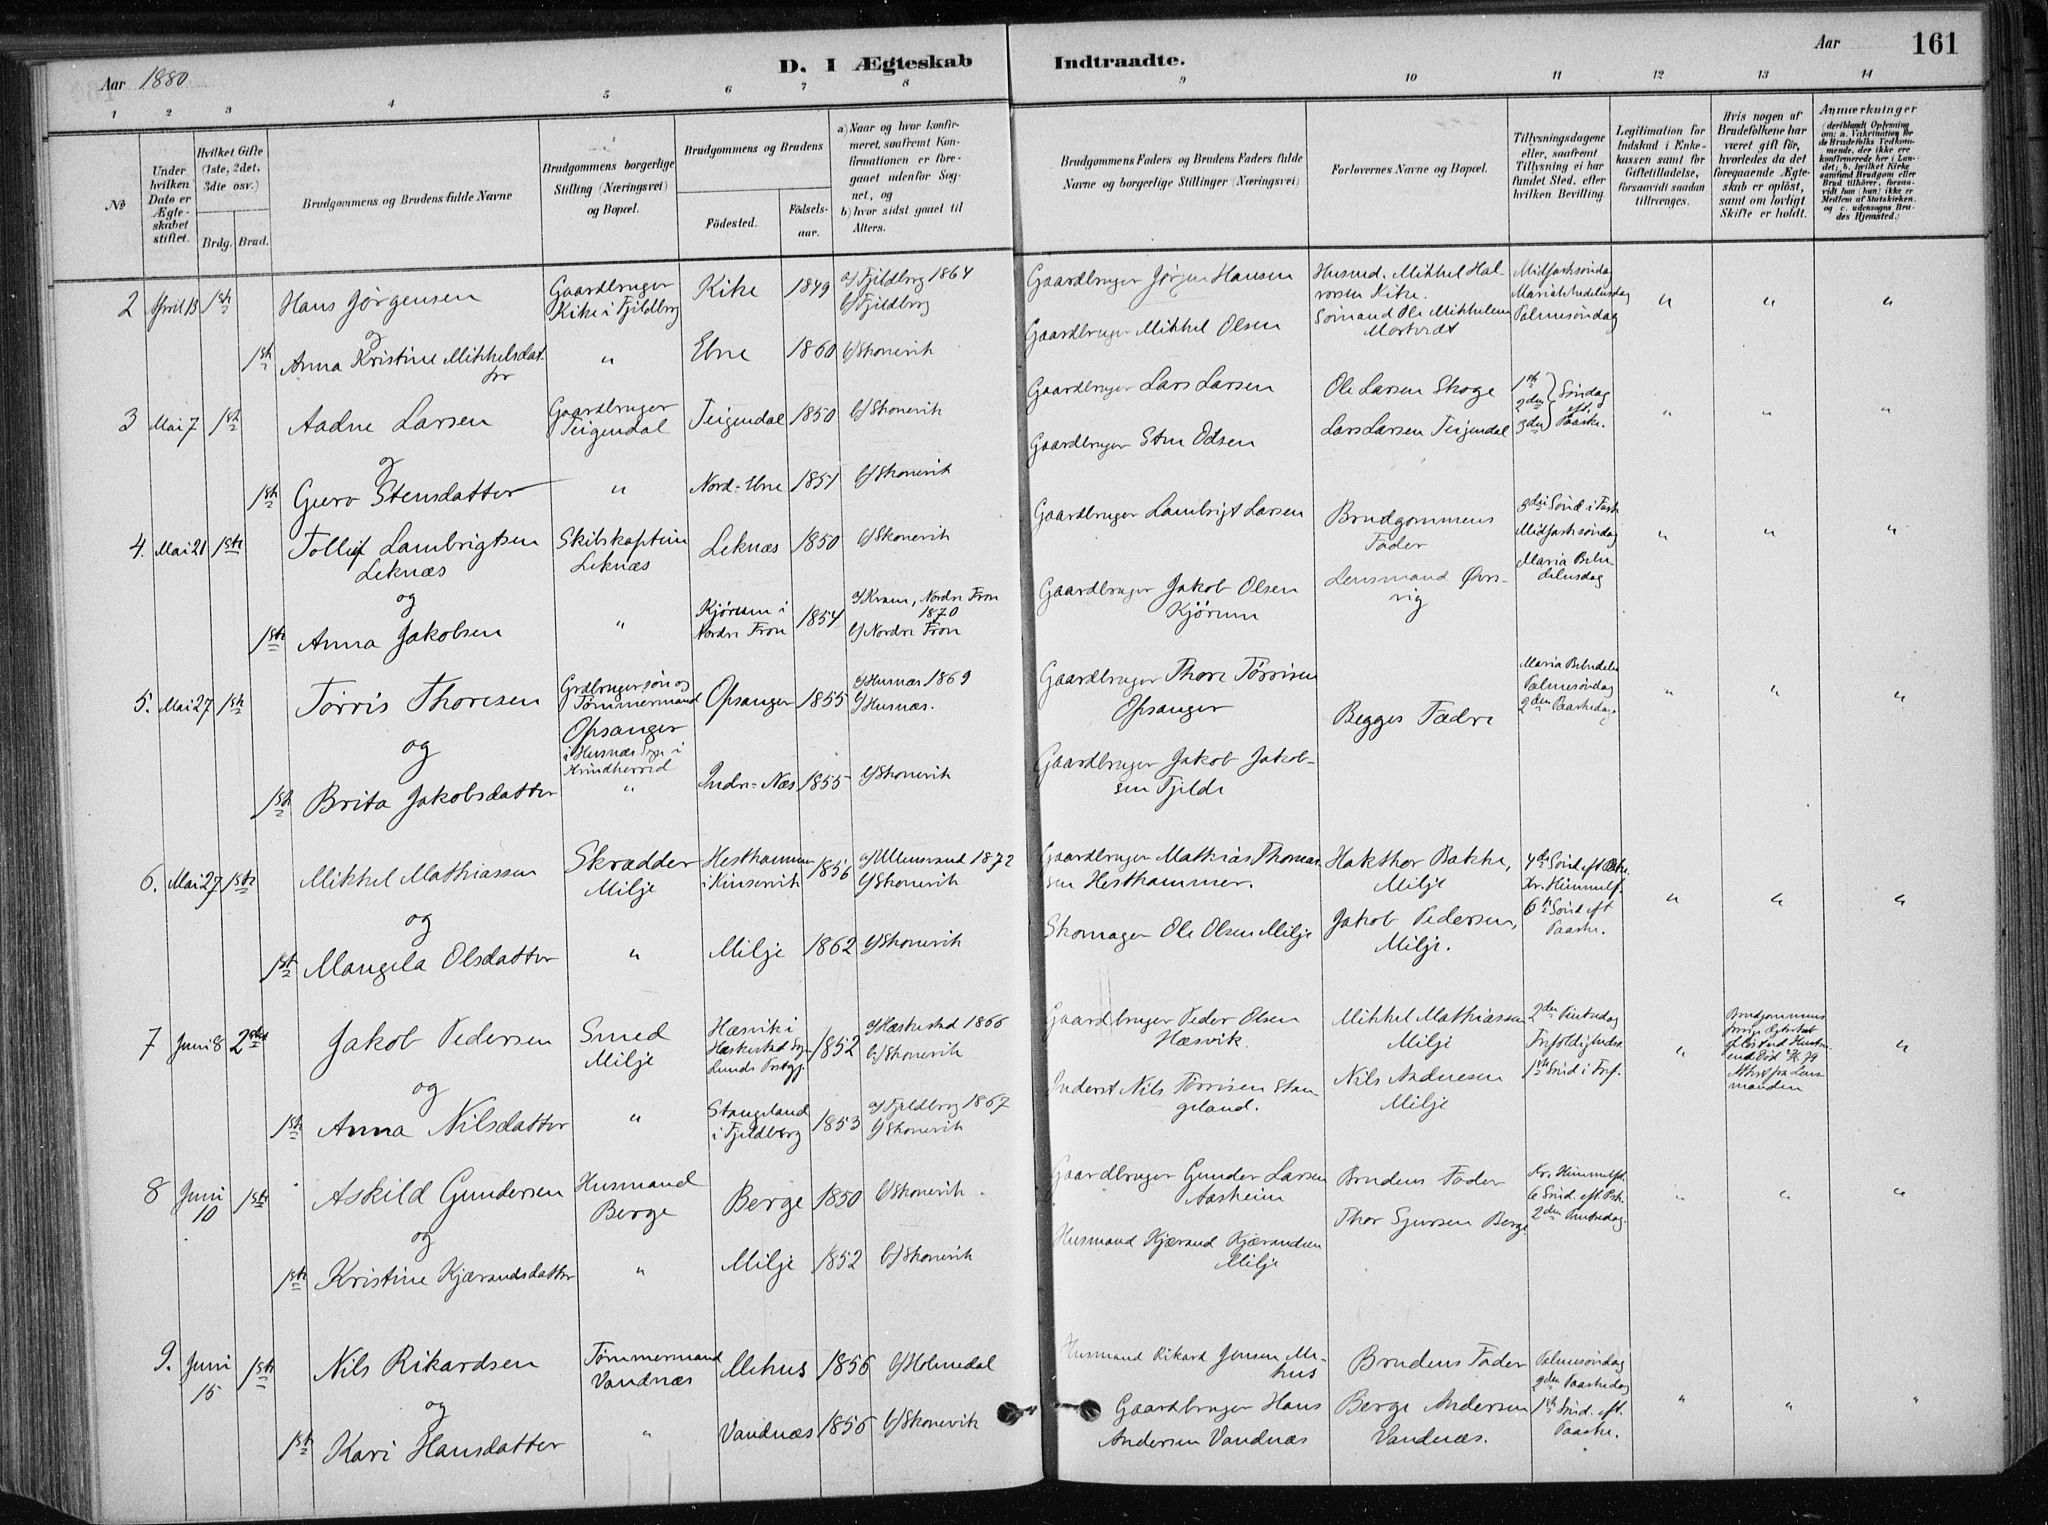 Aar 1880
D. I Ægteskab
Indtraadte.
Aar
161
1 2 3 4 5 6 7 8 9 10 11 12 13 14
No
Under hvilken Dato er Ægte-skabet stiftet.
Hvilket Gifte (1ste, 2det, 3die osv.)
Brdg. Brud.
Brudgommens og Brudens fulde Navne
Brudgommens borgerlige Stilling (Næringsvei) og Bopæl.
Brudgommens og Brudens
Fødested.
Fødsels-aar.
a) Naar og hvor konfir-meret, saafremt Kon-firmationen er fore-gaaet udenfor Sog-net, og
b) hvor sidst gaaet til Alters.
Brudgommens Faders og Brudens Faders fulde Navne og borgerlige Stillinger (Næringsvei)
Forlovernes Navne og Bopæl.
Tillysningsdagene eller, saafremt Tillysning ei har fundet Sted, efter hvilken Bevilling
Legitimation for Indskud i Enke-kassen samt for Giftetilladelse, forsaavidt saadan tiltrænges.
Hvis nogen af Brudefolkene har været gift før, hvorledes da det foregaaende Ægte-skab er opløst, samt om lovligt Skifte er holdt.
Anmærkninger (deriblandt Oplysning om: a. Vakcination for de Brudefolks Vedkom-mende, der ikke ere konfirmerede her i Lan-det; b. hvilket Kirke-samfund Brudgom eller Brud tilhører, forsaa-vidt han (hun) ikke er Medlem af Statskirken, og c. udensogns Bru-des Hjemsted.)
2 April 13 1ste Hans Jørgensen Gaardbruger Kike i Fjeldberg Kike 1849 a) Fjeldberg 1864 b) Fjeldberg Gaardbruger Jørgen Hansen Husmd. Mikkel Hal-vorsen Kike. Midfastesøndag " " "
og
1ste Anna Kristine Mikkelsdat-ter " Ebne 1860 b) Skonevik Gaardbruger Mikkel Olsen Sømand Ole Mikkelsen Mariæ Bebudelsesdag Palmesøndag
3 Mai 7 1ste Aadne Larsen Gaardbruger Teigendal Teigendal 1850 b) Skonevik Gaardbruger Lars Larsen Ole Larsen Skoge 1ste 2den 3die Søndag eft. Paaske. " " "
og
1ste Guro Stensdatter " Nord-Ebne 1851 b) Skonevik Gaardbruger Sten Olsen Lars Larsen Teigendal
4. Mai 21 1ste Tollef Lambrigtsen Leknæs Skibskaptein Leknæs Leknæs 1850 b) Skonevik Gaardbruger Lambrigt Larsen Brudgommens Fader 3die Sønd i Fast Midfastesøndag Maria Bebu-delsesdag " " "
og
1ste Anna Jakobsen " Kjørum i Nordre Fron 1854 a) Kvam, Nordre Fron 1870 b) Nordre Fron Gaardbruger Jakob Olsen Kjørum Lensmand Øvre-vig
5. Mai 27 1ste Tørris Thoresen Grdbrugersøn og Tømmermand Opsanger i Husnæs Sogn i Kvindherred Opsanger 1855 a) Husnæs 1869 b) Husnæs. Gaardbruger Thore Tørrisen Opsanger Begges Fædre Maria Bebudelse Palmesøndag 2den Paaskedag " " "
og
1ste Brita Jakobsdatter " Indre-Næs 1855 b) Skonevik Gaardbruger Jakob Jakob-sen Fjelde
6. Mai 27 1ste Mikkel Mathiassen Skrædder Milje Hesthammer i Kinservik 1856 a) Ullensvand 1872 b) Skonevik Gaardbruger Mathias Thomas-sen Hesthammer. Hakthor Bakke, Milje 4de Sønd eft Paske. Kr. Himmelf. 6te Sønd eft Paaske. " " "
og
1ste Mangela Olsdatter " Milje 1862 b) Skonevik Skomager Ole Olsen Milje Jakob Pedersen, Milje.
7 Juni 8 2det Jakob Pedersen Smed Milje Hæsvik i Hæskestad Sogn Lunds Prstgj. 1852 a) Hæskestad 1866 b) Skonevik Gaardbruger Peder Olsen Hæsvik. Mikkel Mathiassen Milje 2den Pintsedag Trefoldigheds. 1ste Sønd i Tref. " Brudgommens forrige Ægteskab opløst ved Hustru-ens Død Attest fra Lens-manden "
og
1ste Anna Nilsdatter " Stangeland i Fjeldberg 1853 a) Fjeldberg 1867 b) Skonevik Inderst Nils Tørrisen Stan-geland. Nils Aadnesen Milje
8 Juni 10 1ste Askild Gundersen Husmand Berge Berge 1850 b) Skonevik. Gaardbruger Gunder Larsen Aasheim Brudens Fader Kr. Himmelft. 6 Sønd. eft. Psk. 2den Pintsedag. " " "
og
1ste Kristine Kjærandsdatter " Milje 1852 b) Skonevik Husmand Kjærand Kjærandsen Milje Thor Sjursen Berge
9. Juni 15 1ste Nils Rikardsen Tømmermand Vandnæs Mehus 1856 b) Holmedal Husmand Rikard Jensen Me-hus Brudens Fader Palmesøndag 2den Paaskedag 1ste Sønd. eft. Paaske. " " "
og
1ste Kari Hansdatter " Vandnæs 1856 b) Skonevik Gaardbruger Hans Andersen Vandnæs Berge Andersen Vandnæs.